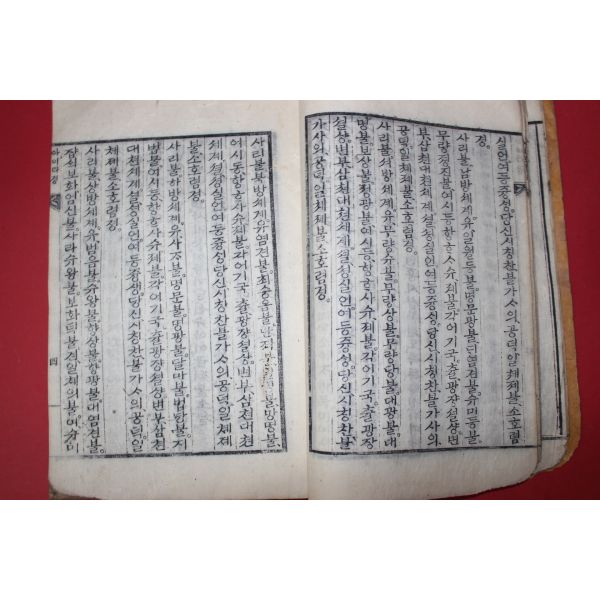 실언여등증성당신시칭찬불가사의공덕일체제불소호렴
경
사리불남방체계유일월등불명문광불대염견불슈미등불
무량정진불여시등항하사슈제불각어기국출광장셜상변
부삼쳔대쳔체계셜셩실언여등증성당신시칭찬불가사의
공덕일체제불소호렴경
사리불셔방체계유무량슈불무량상불무량당불대광불대
명불보상불정광불여시등항하사슈제불각어기국출광장
셜상변부삼쳔대쳔체계셜셩실언여등증성당신시칭찬불
가사의공덕일체제불소호렴경
사리불북방체계유염견불최승음불난저불망명불
여시등항하사슈제불각어기국출광장셜상변부삼쳔대쳔
체계셜셩실언여등증성당신시칭찬불가사의공덕일체제
불소호렴경
사리불하방체계유사자불명문불명광불달마불법당불지
법불여시등항하사슈제불각어기국출광장셜상변부삼쳔
대쳔체계셜셩실언여등증생당신시칭찬불가사의공덕일
체제불소호렴경
사리불상방체계유범음불슈왕불향상불향광불대염견불
잡색보화엄신불사라슈왕불보화덕불견일체의불여슈미
아미타경
四